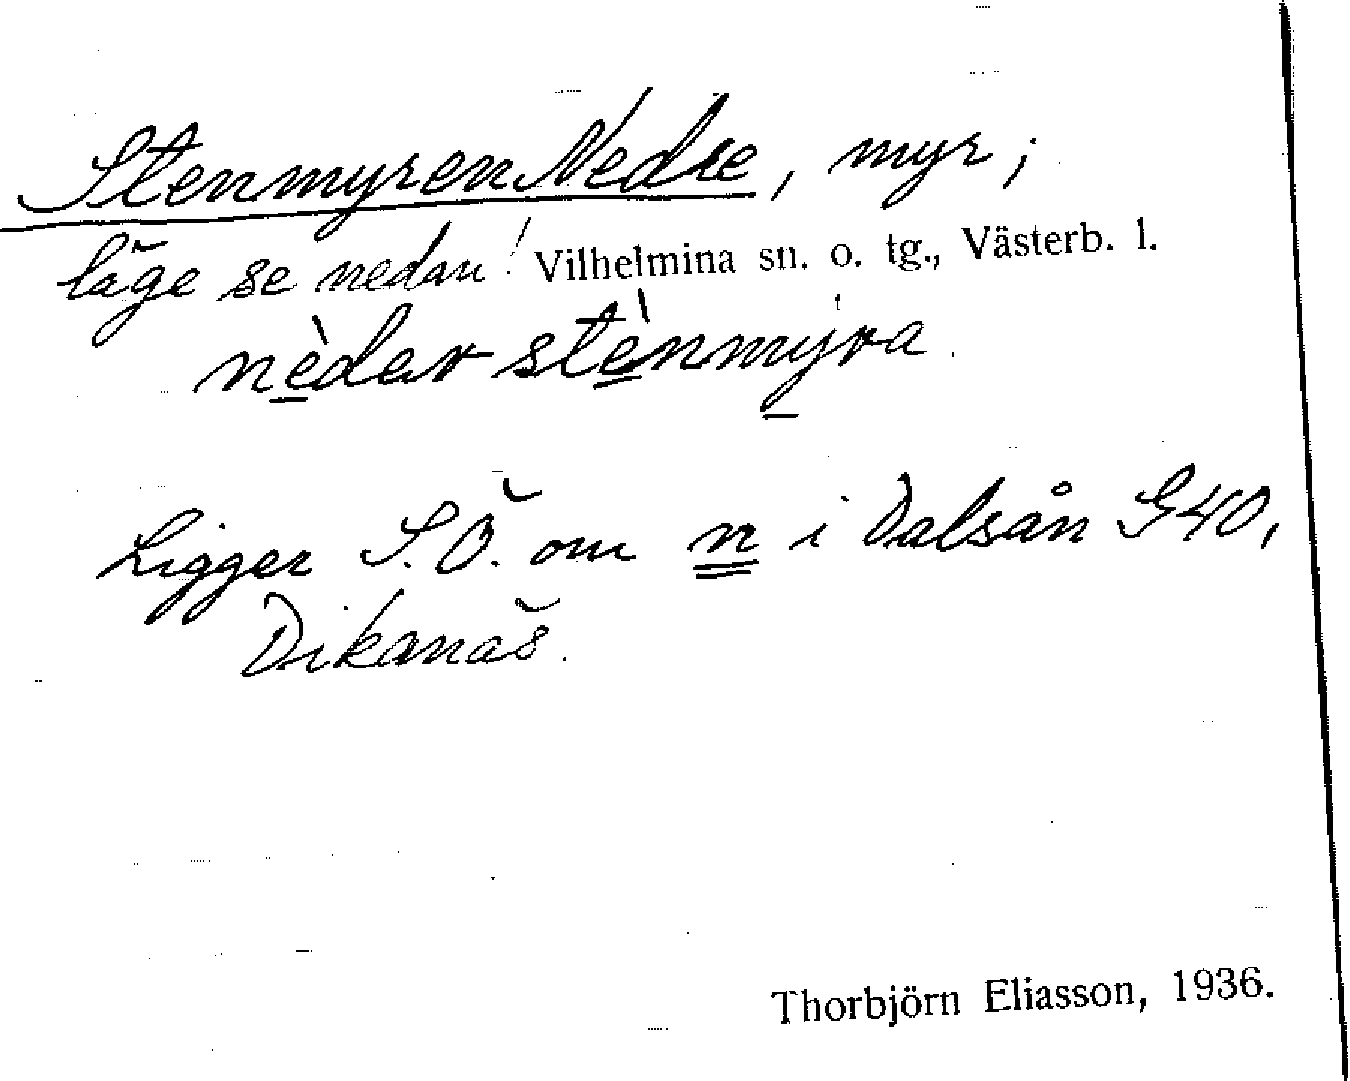 Stenmyren Nedre, myr;
läge se nedan! Vilhelmina sn. o. tg., Västerb. l.
nèdar stènmyra
Ligger S.Ö. om n i Dalsån G40,
Dikanäs.
Thorbjörn Eliasson, 1936.